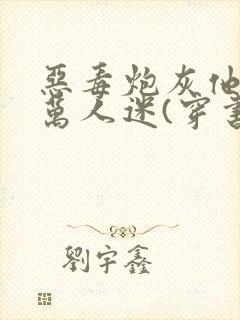 惡毒炮灰他
萬人迷(穿書
劉宇鑫